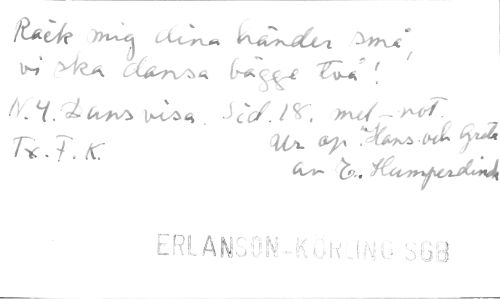 Räck mig dina händer små,
vi ska dansa bägge två!
N.4. Dansvisa. Sid. 18. mel-not.
Tx. F. K. Ur op. "Hans och Greta
av E. Humperdinck
ERLANSON-KÖRLING SGB